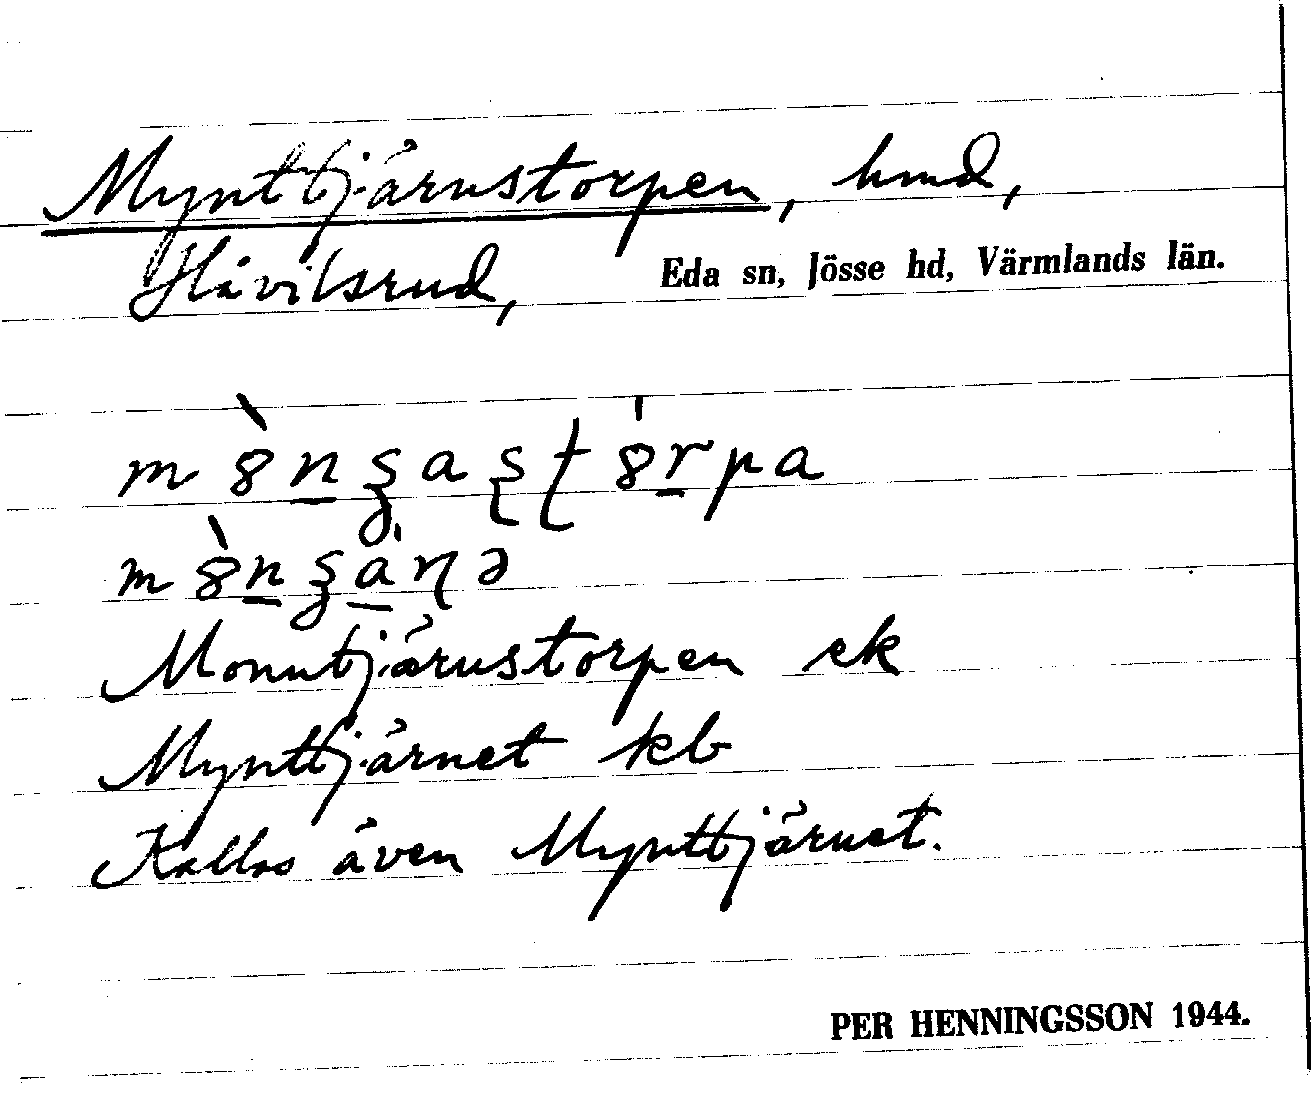 Mynttjärnstorpen, hmd,
Håvilsrud, Eda sn, Jösse hd, Värmlands län.
Monntjärnstorpen ek
Mynttjärnet kb
Kallas även Mynttjärnet.
PER HENNINGSSON 1944.